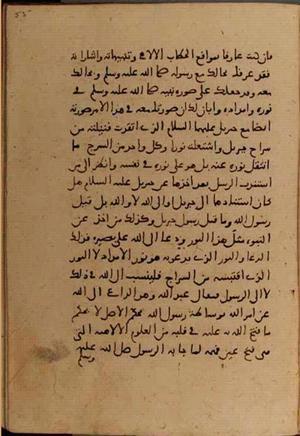 فان كنت عارفا بمواقع الخطاب الالهى وتنبيهاته واشاراته
فقد عرفك بحالك مع رسوله صلى الله عليه وسلم وبحالك
معه وخرجك على صورة نبيه صلى الله عليه وسلم في
نوره وامداده وابان لك ان صورتك معه في هذا الامر صورته
ايضا مع جبريل عليهما السلام الذي اتقدت فتيلته من
سراج جبريل واشتعلت نورا وكل واحد من السرج ما
انتقل نوره عنه بل هو على نوره في نفسه وانظر الى من
استند من الرسل بعد اخذها عن جبريل عليه السلام هل
كان استنادها الى جبريل او الى الله لا والله بل قيل
رسول الله وما قيل رسول جبريل وكذلك من اخذ عن
النبي مثل هذا النور ودعا الى الله على بصيرة فذلك
الدعا والنور الذي يدعو به هو نور الامداد لا النور
الذي اقتبسه من السراج فلينسب الى الله في ذلك
لا الى الرسول فيقال عبد الله وهو الداعي الى الله
عن امر الله بوساطة رسول الله بحكم الاصل لا بحكم
ما فتح الله به عليه في قلبه من العلوم الالهية التى
هى فتح عين فهمه لما جا به الرسول صلى الله عليه
وسلم